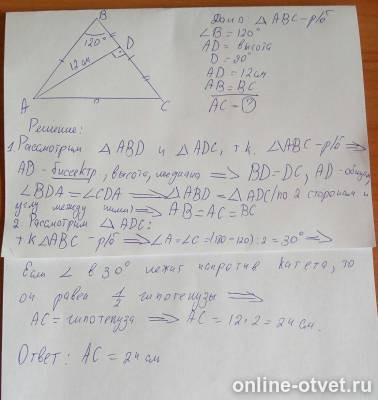 Дано △ABC-р/б
∠B = 120°
AD = высота
D = 90°
AD = 12см
AB = BC
AC - ?
B
120°
D
12 см
A
C
Решение:
1. Рассмотрим △ABD и △ADC, т.к. △ABC-р/б ⟹
AD-биссектр, высота, медиана ⟹ BD=DC, AD-общая,
∠BDA=∠CDA ⟹ △ABD = △ADC (по 2 сторонам и
углу между ними) ⟹ AB=AC=BC
2. Рассмотрим △ADC:
т.к △ABC - р/б ⟹ ∠A=∠C=(180-120):2=30° ⟹
Если ∠ в 30° лежит напротив катета, то
он равен 1/2 гипотенузы ⟹
AC = гипотенуза ⟹ AC = 12·2=24 см.
Ответ: AC = 24 см
online-otvet.ru